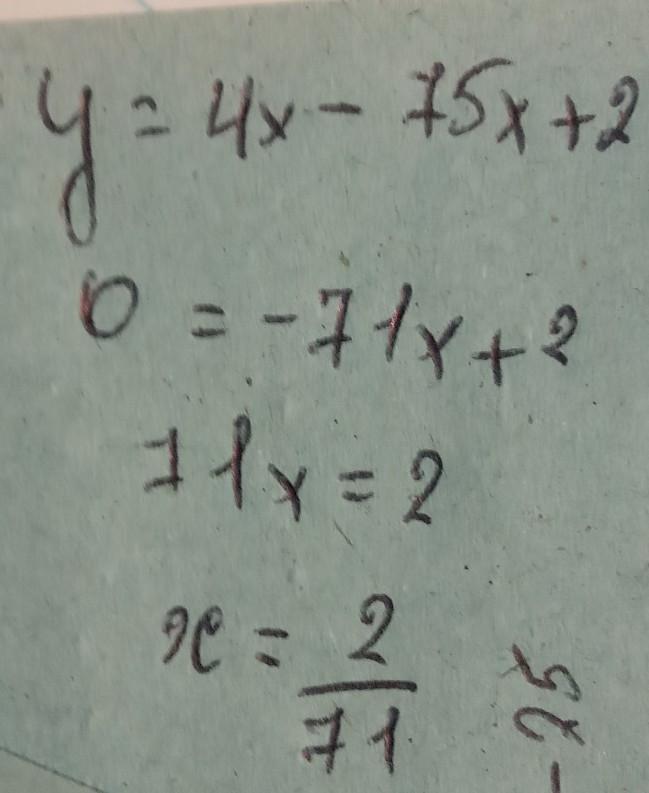 y = 4x - 75x + 2
0 = -71x + 2
71x = 2
x = 2/71